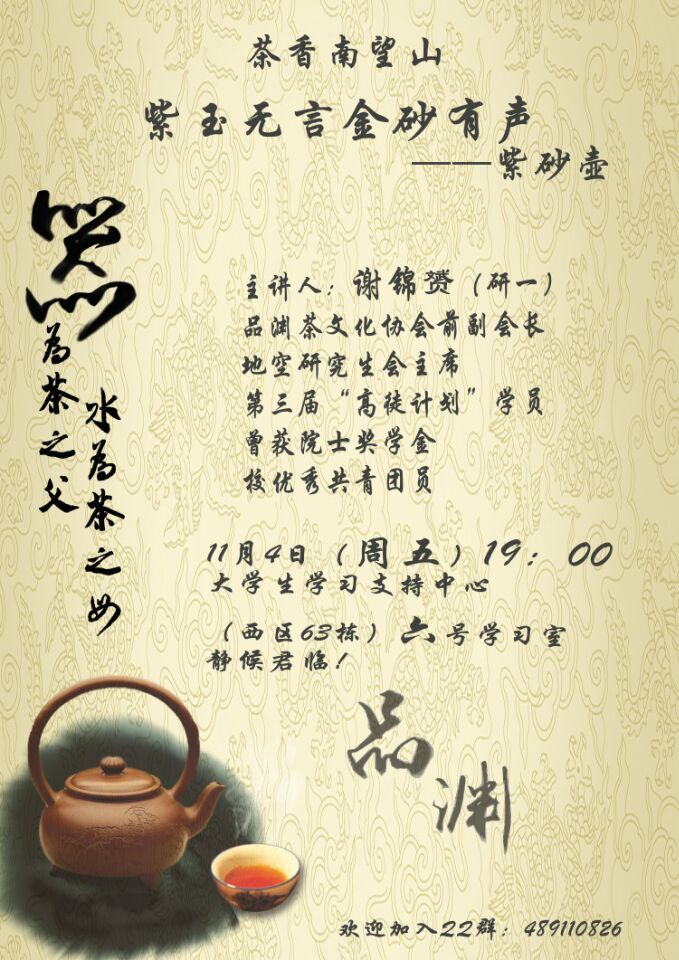 茶香南望山
紫玉无言金砂有声
——紫砂壶
器
为茶之父
水为茶之母
主讲人：谢锦赟（研一）
品渊茶文化协会前副会长
地空研究生会主席
第三届“高徒计划”学员
曾获院士奖学金
校优秀共青团员
11月4日（周五）19：00
大学生学习支持中心
（西区63栋）六号学习室
静候君临！
品渊
欢迎加入22群：489110826